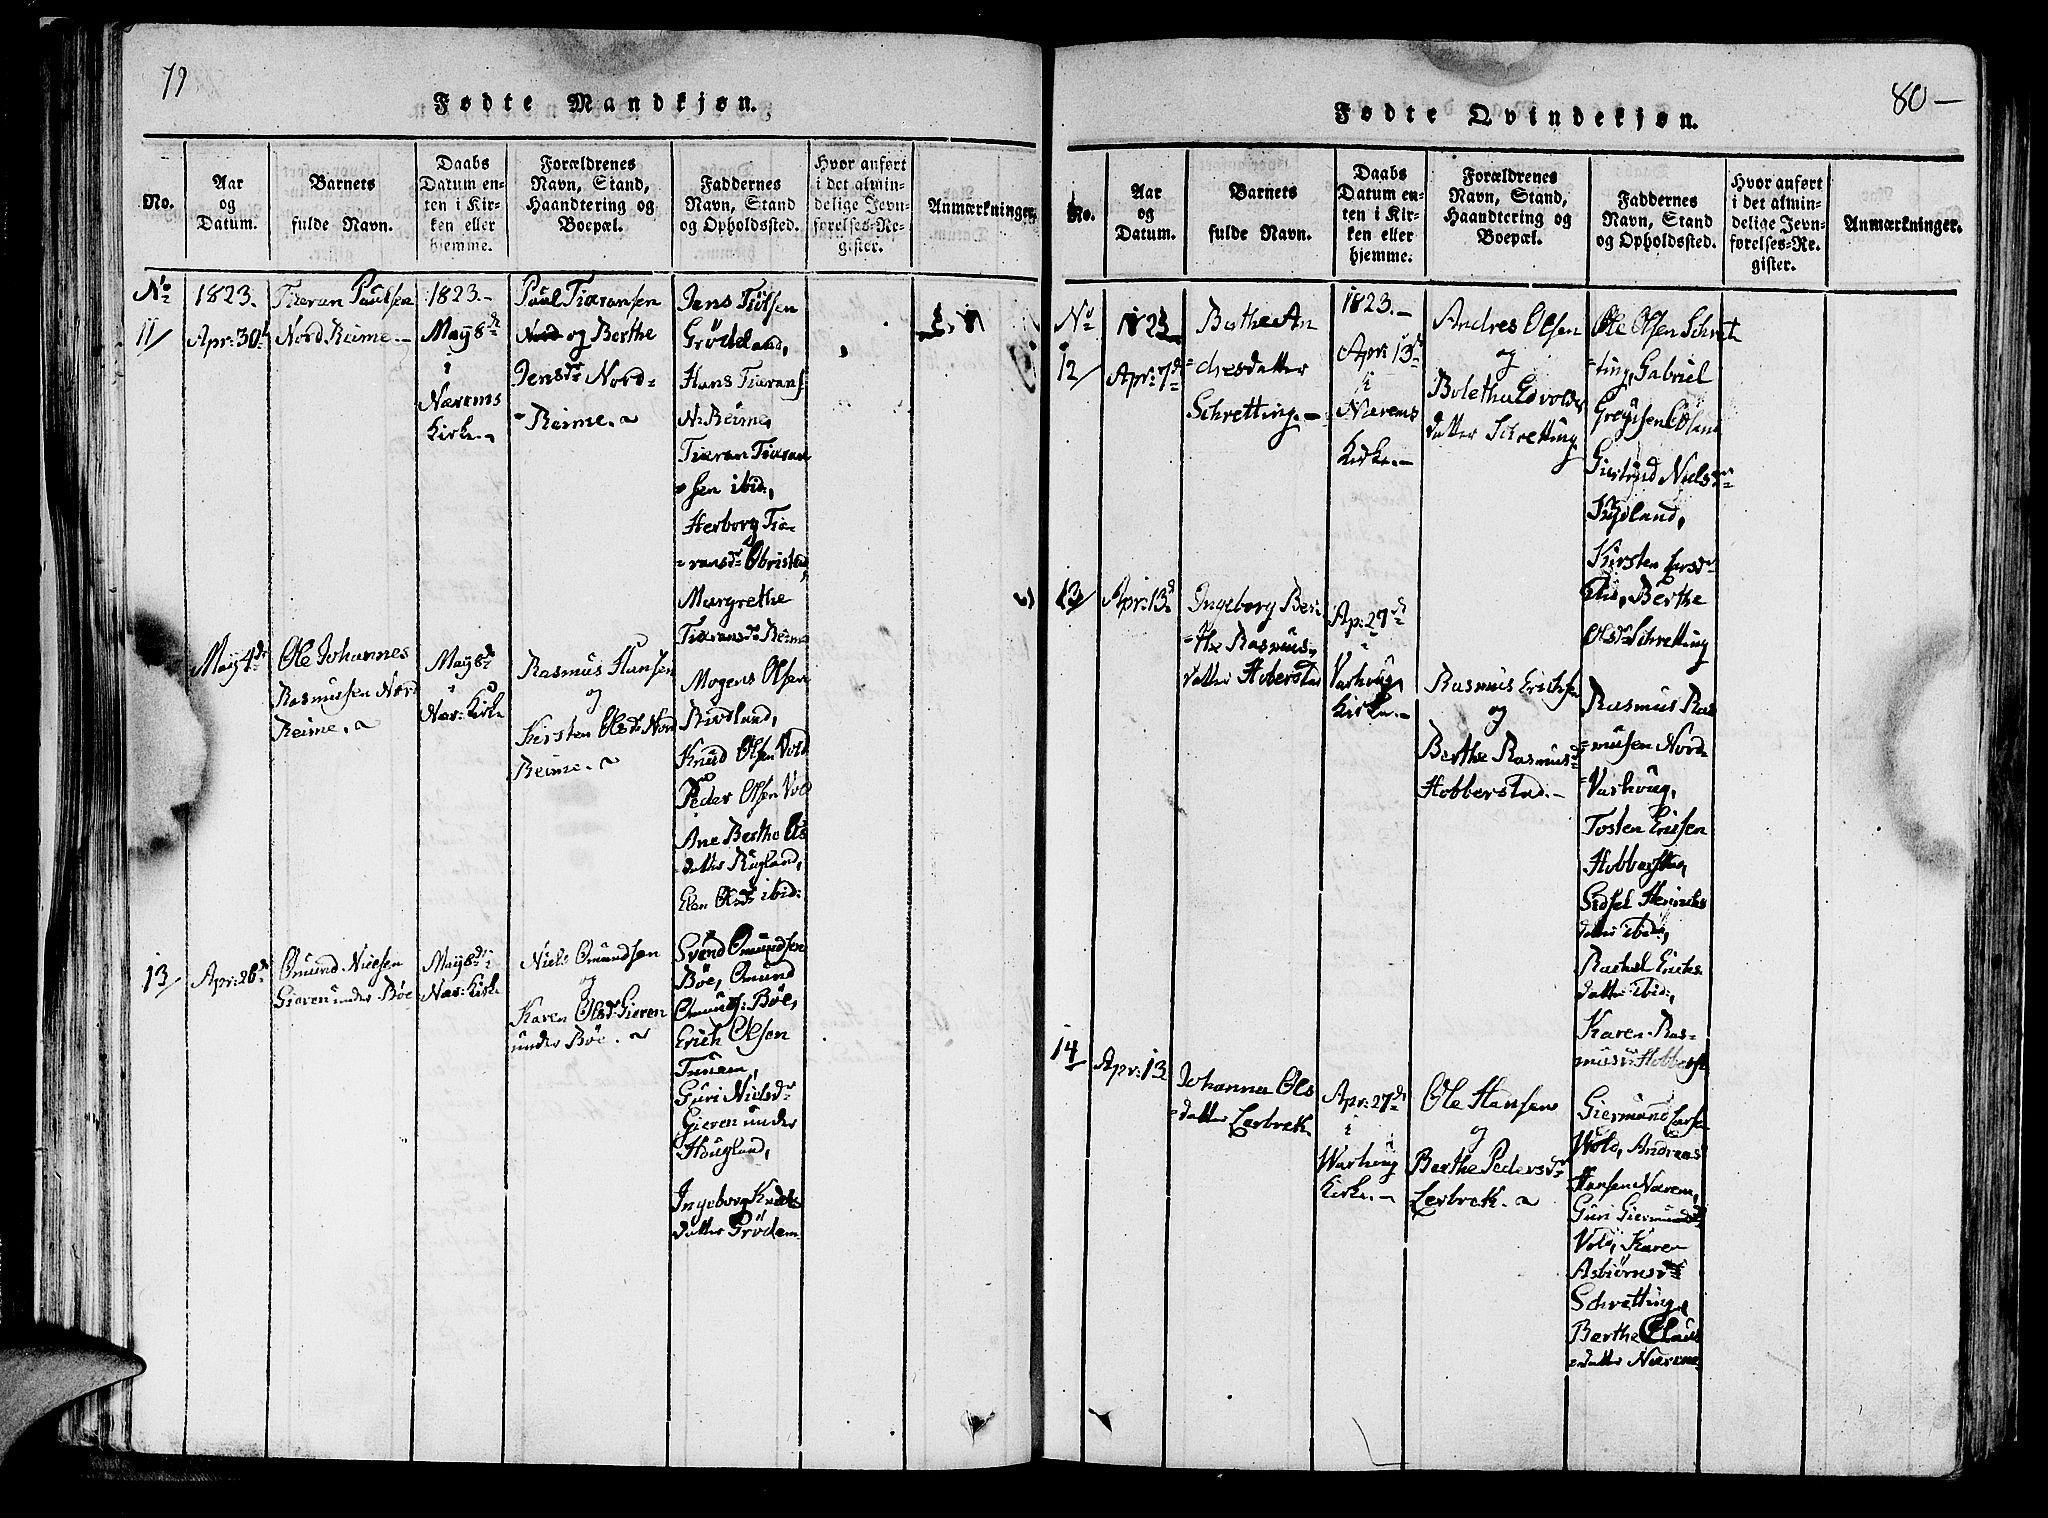 79
Fødte Mandkjøn.
No.
Aar
og
Datum.
Barnets
fulde Navn.
Daabs
Datum en-
ten i Kir-
ken eller
hjemme.
Forældrenes
Navn, Stand,
Haandtering og
Boepæl.
Faddernes
Navn, Stand
og Opholdssted.
Hvor anført
i det almin-
delige Jevn-
førelses-Re-
gister.
Anmærkninger.
No
11/
1823.
Apr: 30te
Tiøran Paulsen
Nord Reime.
1823.-
May 8de
i
Nærems
Kirke.
Paul Tiøransen
og Berthe
Jensdr Nord-
Reime.
Jens
Grödeland,
Hans Tiørans
N: Reime,
Tiøran Tiøran
sen ibid,
Herborg Tiø-
ransdr Obrista
Margrethe
Tiøransdr Reime
May 4de
Ole Johannes
Rasmussen Nord
Reime.
May 8de
i
Nær: Kirke
Rasmus Hansen
og
Kirsten Olsdr Nord
Reime.
Mogens Olsen
Birkland,
Knud Olsen Vold
Peder Olsen Vold
Ane Berthe Ols
datter Rugland,
Elen Olsdr ibid:
13/
Apr: 26de
Omund Nielsen
Gieren under Böe
May 8de i
Nær: Kirke
Niels Omundsen
og
Karen Olsdr Gieren
under Böe.
Svend Omundsen
Böe, Omund
Omunds: Böe,
Erich Olsen
Tunem,
Guri Nielsdr
Gieren under
Hougland,
Ingeborg
datter Grödem
80-
Fødte Qvindekjøn.
No.
Aar
og
Datum.
Barnets
fulde Navn.
Daabs
Datum en-
ten i Kir-
ken eller
hjemme.
Forældrenes
Navn, Stand,
Haandtering og
Boepæl.
Faddernes
Navn, Stand
og Opholdssted.
Hvor anført
i det almin-
delige Jevn-
førelses-Re-
gister.
Anmærkninger.
No
12/
1823
Apr: 7de
Berthe An
=dresdatter
Schretting.-
1823.-
Apr: 13de
i
Nærems
Kirke.-
Andres Olsen
og
Bolethe Edvolds
datter Schretting
Ole Olsen Schret
ting, Gabriel
Giertrud Nielsdr
Kirsten Larsdr
Berthe
Olsdr Schretting
13/
Apr: 13de
Ingeborg Ber
=the Rasmus-
datter Hoberstad
Ap: 27de
i
Varhoug
Kirke.-
Rasmus Erichsen
og
Berthe Rasmusdr
Hobberstad.-
Rasmus Ras
=musen Nord
=Varhoug,
Tosten Ericsen
Hobberstad,
Sidsel Henrichs
datter ibid,
Rachel Erichs
datter ibid,
Karen Ras-
musdr Hobberst
14/
Apr: 13
Johanna Ols
=datter Lerbrek.
Apr: 27de
i
Warhoug
Kirke.-
Ole Hansen
og
Berthe Pedersdr
Lerbrek.
Giermund Larsen
Wold, Andreas
Hansen Nærem,
Guri Giermundsdr
Vold, Karen
Asbiørnsdr
Schretting,
Berthe Claus
=datter Nærem